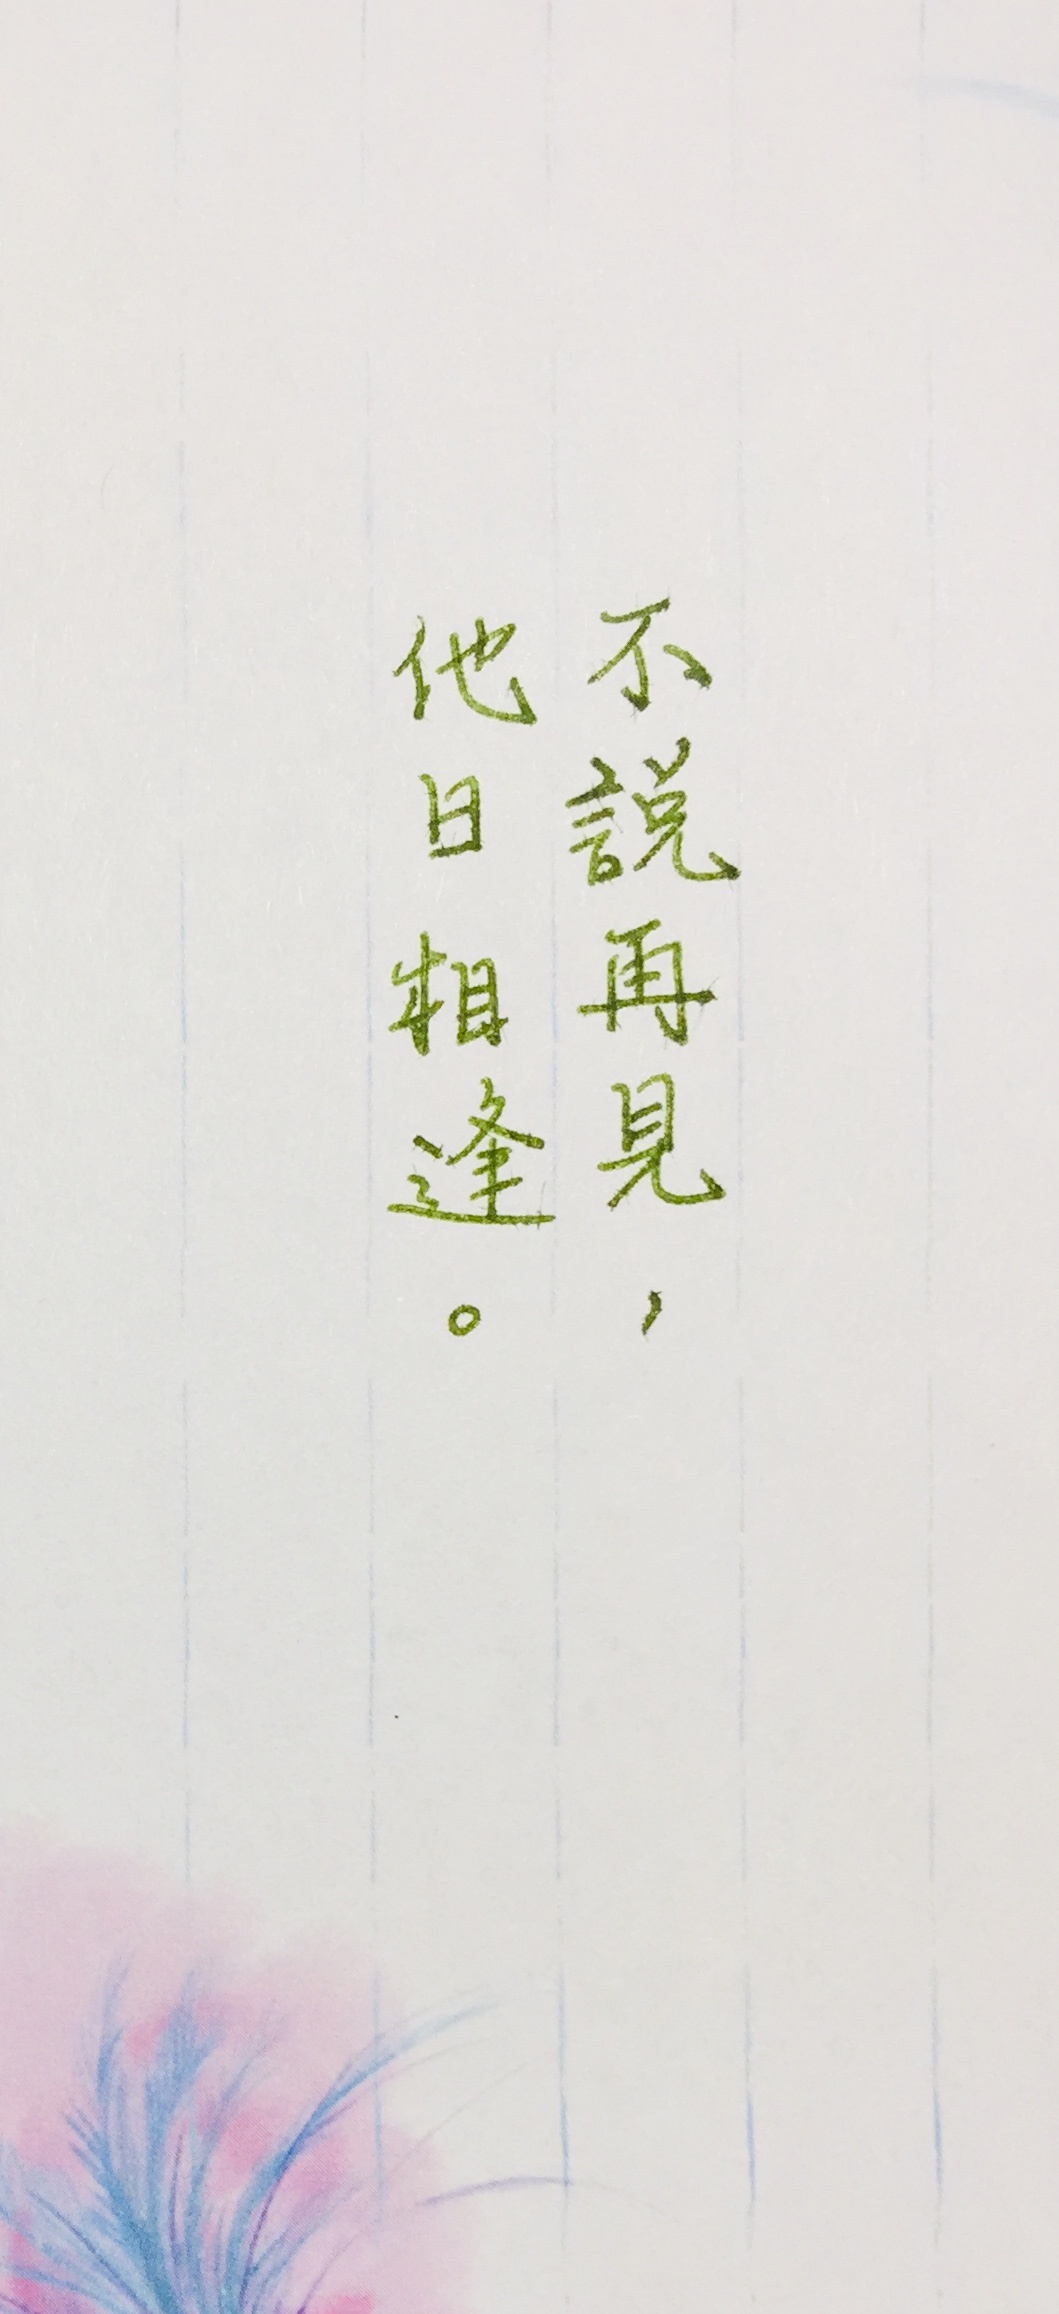 不說再見，
他日相逢。